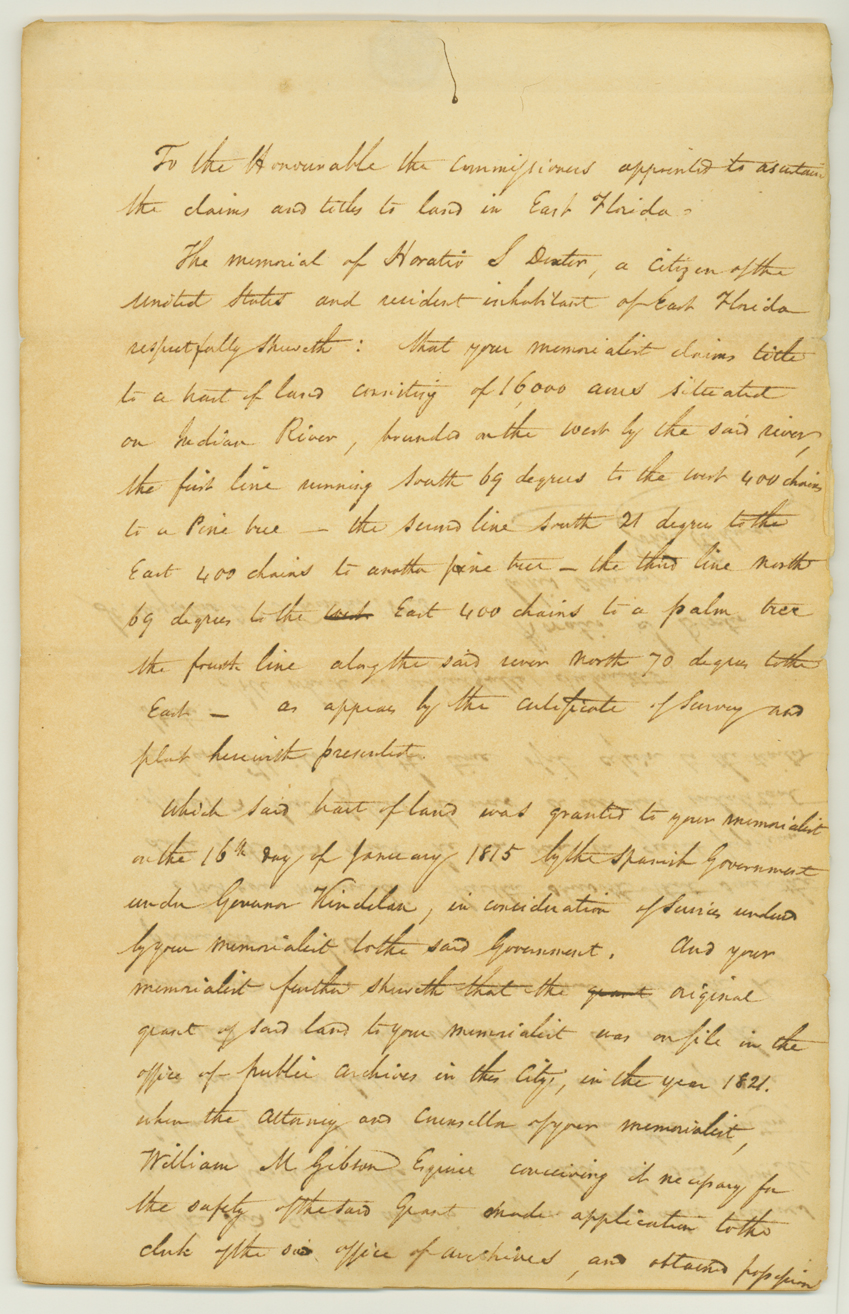 To the Honourable the commissioners appointed to ascertain
the claims and titles to land in East Florida.
The memorial of Horatio S Dexter, a citizen of the
united States and resident inhabitant of East Florida
respectfully sheweth: that your memorialist claims title
to a tract of land consisting of 16,000 acres situated
on Indian River, bounded on the west by the said river,
the first line running South 69 degrees to the west 400 chains
to a Pine tree — the second line south 21 degrees to the
East 400 chains to another pine tree — the third line North
69 degrees to the west East 400 chains to a palm tree
the fourth line along the said river North 70 degrees to the
East — as appears by the certificate of Survey and
plat herewith presented
Which said tract of land was granted to your memorialist
on the 16th day of January 1815 by the Spanish Government
under Governor Kindelan, in consideration of Services rendered
by your memorialist to the said Government. And your
memorialist further sheweth that the grant original
grant of said land to your memorialist was on file in the
office of public archives in this City, in the year 1821.
when the attorney and Counsellor of your memorialist,
William M Gibson Esquire conceiving it necessary for
the safety of the said Grant made application to the
clerk of the said office of archives, and obtained possession